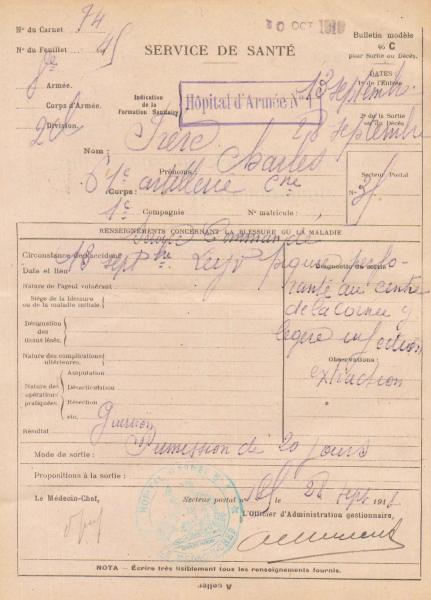 N° du Carnet 74
20 OCT 1918
N° du Feuillet
Bulletin modèle
46 C
pour Sortie ou Décès.
SERVICE DE SANTÉ
Armée.
Corps d'Armée.
Division.
Indication
de la
Formation Sanitaire
Hôpital d'Armée N° 1
DATES
1° de l'Entrée
13 septembre
2° de la Sortie
ou du Décès.
28 septembre
Nom :
Prénoms : Charles
Secteur Postal
N°
Corps : 61e artillerie
Compagnie N° matricule :
RENSEIGNEMENTS CONCERNANT LA BLESSURE OU LA MALADIE
Circonstance de l'accident
Date et lieu 13 septbre
Nature de l'agent vulnérant
Siège de la blessure
ou de la maladie initiale.
Désignation
des
tissus lésés.
Nature des complications
ultérieures.
Nature des
opérations
pratiquées.
Amputation
Désarticulation
Résection
etc.
Diagnostic de sortie
piqure perfo-
rante au centre
de la cornée
légère infection
Observations :
extraction
Résultat Guérison
Mode de sortie : Permission de 20 jours
Propositions à la sortie :
Le Médecin-Chef,
Secteur postal le 28 sept 191
L'Officier d'Administration gestionnaire,
NOTA — Écrire très lisiblement tous les renseignements fournis.
A coller